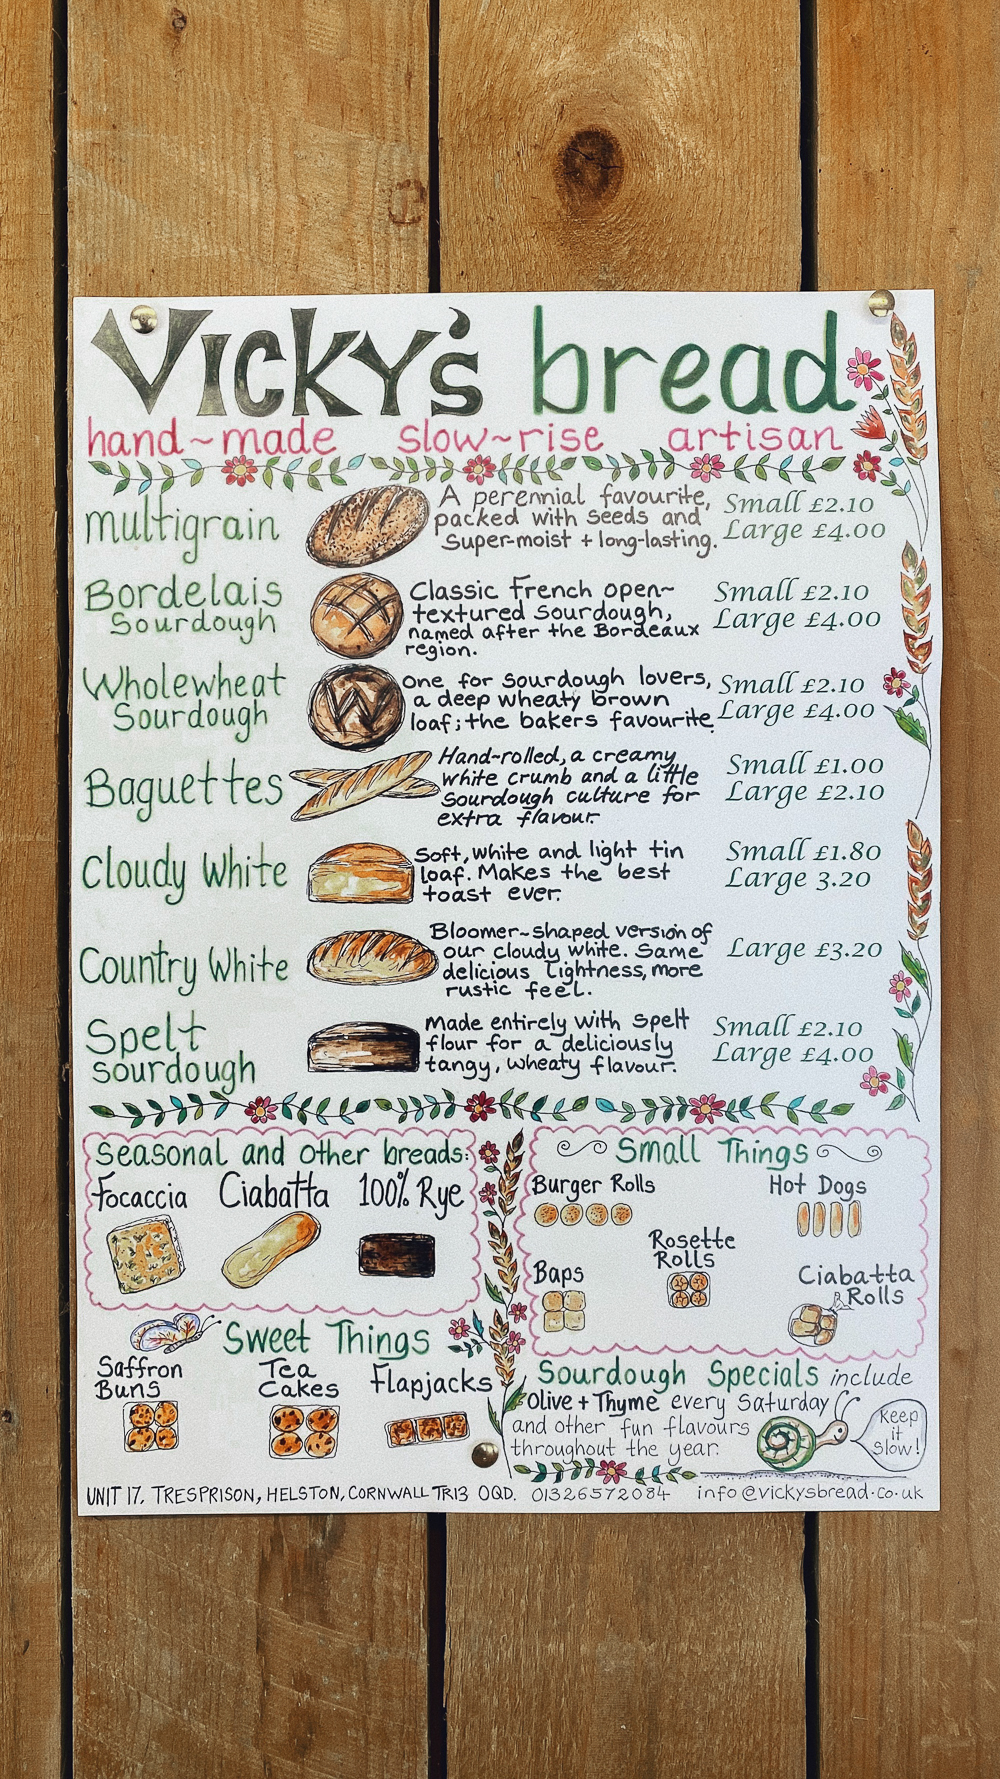 Vicky's bread
hand~made slow~rise artisan
Multigrain
A perennial favourite,
packed with seeds and
super-moist + long-lasting.
Small £2.10
Large £4.00
Bordelais
Sourdough
Classic French open~
textured sourdough,
named after the Bordeaux
region.
Small £2.10
Large £4.00
Wholewheat
Sourdough
W
One for sourdough lovers,
a deep wheaty brown
loaf; the bakers favourite.
Small £2.10
Large £4.00
Baguettes
Hand-rolled, a creamy
white crumb and a little
sourdough culture for
extra flavour.
Small £1.00
Large £2.10
Cloudy White
Soft, white and light tin
loaf. Makes the best
toast ever.
Small £1.80
Large 3.20
Country White
Bloomer~shaped version of
our cloudy white. Same
delicious lightness, more
rustic feel.
Large £3.20
Spelt
sourdough
Made entirely with spelt
flour for a deliciously
tangy, wheaty flavour.
Small £2.10
Large £4.00
Seasonal and other breads:
Focaccia Ciabatta 100% Rye
Small Things
Burger Rolls
Hot Dogs
Rosette
Rolls
Baps
Ciabatta
Rolls
Sweet Things
Saffron
Buns
Tea
Cakes
Flapjacks
Sourdough Specials include
Olive + Thyme every Saturday
and other fun flavours
throughout the year.
Keep
it
slow!
UNIT 17, TRESPRISON, HELSTON, CORNWALL TR13 0QD. 01326572084 info@vickysbread.co.uk